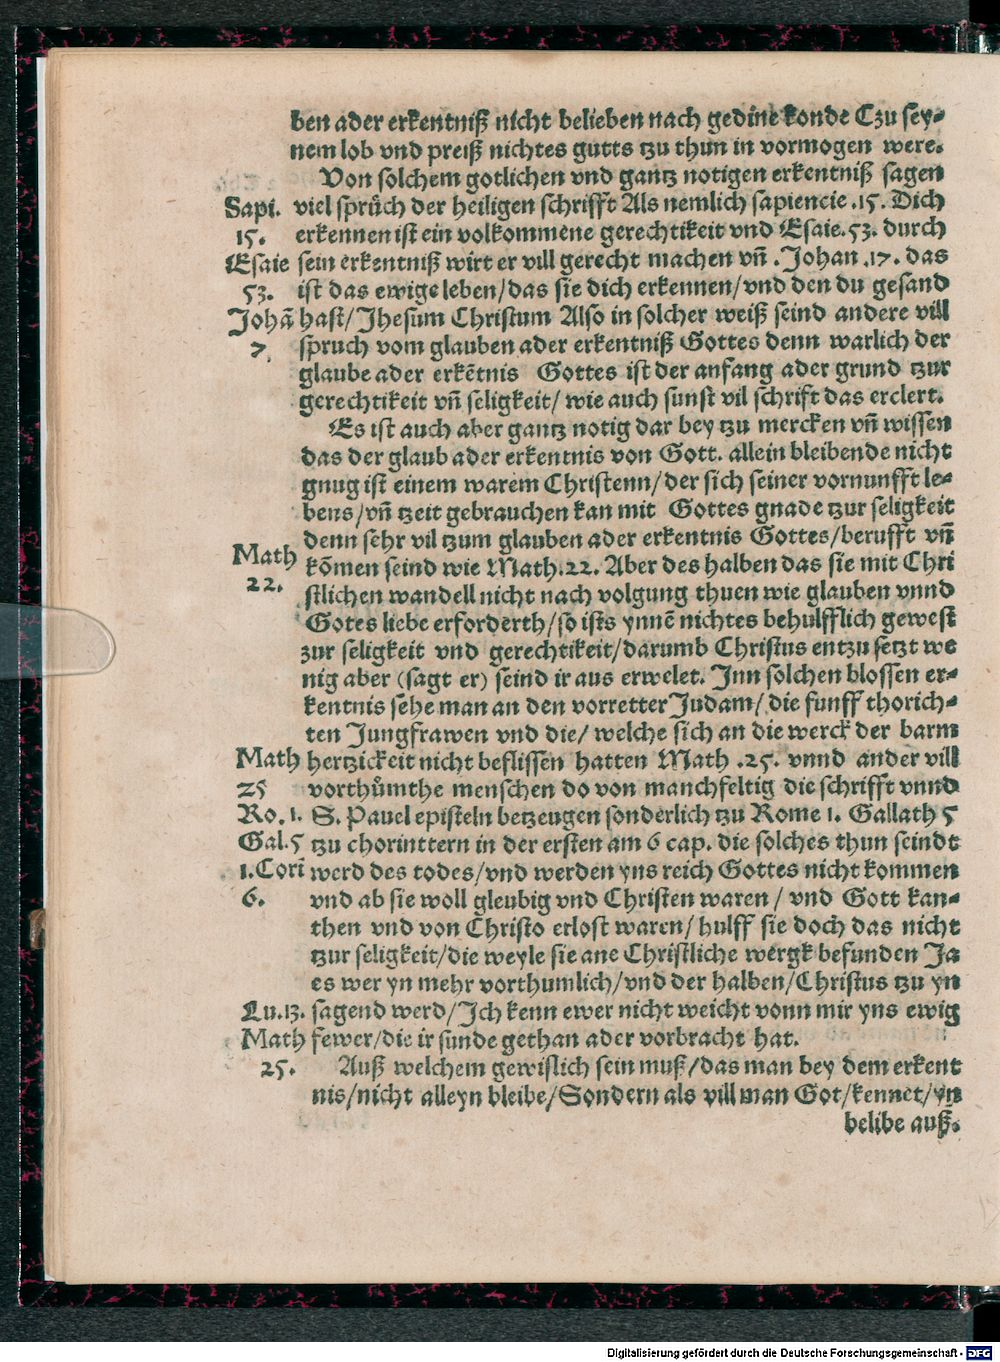 ben ader erkentniß nicht belieben nach gedine konde Czu sey⸗
nem lob vnd preiß nichtes gutts tzu thun in vormogen were.
Von solchem gotlichen vnd gantz notigen erkentniß sagen
Sapi. viel sprůch der heiligen schrifft Als nemlich sapiencie .15. Dich
15. erkennen ist ein volkommene gerechtikeit vnd Esaie.53. durch
Esaie sein erkentniß wirt er vill gerecht machen vñ .Johan .17. das
53. ist das ewige leben/das sie dich erkennen/vnd den du gesand
Johã hast/Jhesum Christum Also in solcher weiß seind andere vill
7. spruch vom glauben ader erkentniß Gottes denn warlich der
glaube ader erkẽtnis Gottes ist der anfang ader grund tzur
gerechtikeit vñ seligkeit/ wie auch sunst vil schrift das erclert.
Es ist auch aber gantz notig dar bey tzu mercken vñ wissen
das der glaub ader erkentnis von Gott. allein bleibende nicht
gnug ist einem warem Christenn/der sich seiner vornunfft le⸗
bens/vñ tzeit gebrauchen kan mit Gottes gnade tzur seligkeit
denn sehr vil tzum glauben ader erkentnis Gottes/berufft vñ
Math kõmen seind wie Math.22. Aber des halben das sie mit Chri
22. stlichen wandell nicht nach volgung thuen wie glauben vnnd
Gotes liebe erforderth/so ists ynnẽ nichtes behulfflich gewest
zur seligkeit vnd gerechtikeit/darumb Christus entzu setzt we
nig aber (sagt er) seind ir aus erwelet. Jnn solchen blossen er⸗
kentnis sehe man an den vorretter Judam/die funff thorich⸗
ten Jungfrawen vnd die/ welche sich an die werck der barm
Math hertzickeit nicht beflissen hatten Math .25. vnnd ander vill
25 vorthůmthe menschen do von manchfeltig die schrifft vnnd
Ro. 1. S. Pauel episteln betzeugen sonderlich tzu Rome 1. Gallath 5
Gal.5 tzu chorinttern in der ersten am 6 cap. die solches thun seindt
1.Cori werd des todes/vnd werden yns reich Gottes nicht kommen
6. vnd ab sie woll gleubig vnd Christen waren/ vnd Gott kan⸗
then vnd von Christo erlost waren/hulff sie doch das nicht
tzur seligkeit/die weyle sie ane Christliche wergk befunden Ja
es wer yn mehr vorthumlich/vnd der halben/Christus tzu yn
Lu.13. sagend werd/Jch kenn ewer nicht weicht vonn mir yns ewig
Math fewer/die ir sunde gethan ader vorbracht hat.
25. Auß welchem gewislich sein muß/das man bey dem erkent
nis/nicht alleyn bleibe/Sondern als vill man Got/kennet/yn
belibe auß.
Digitalisierung gefördert durch die Deutsche Forschungsgemeinschaft - DFG